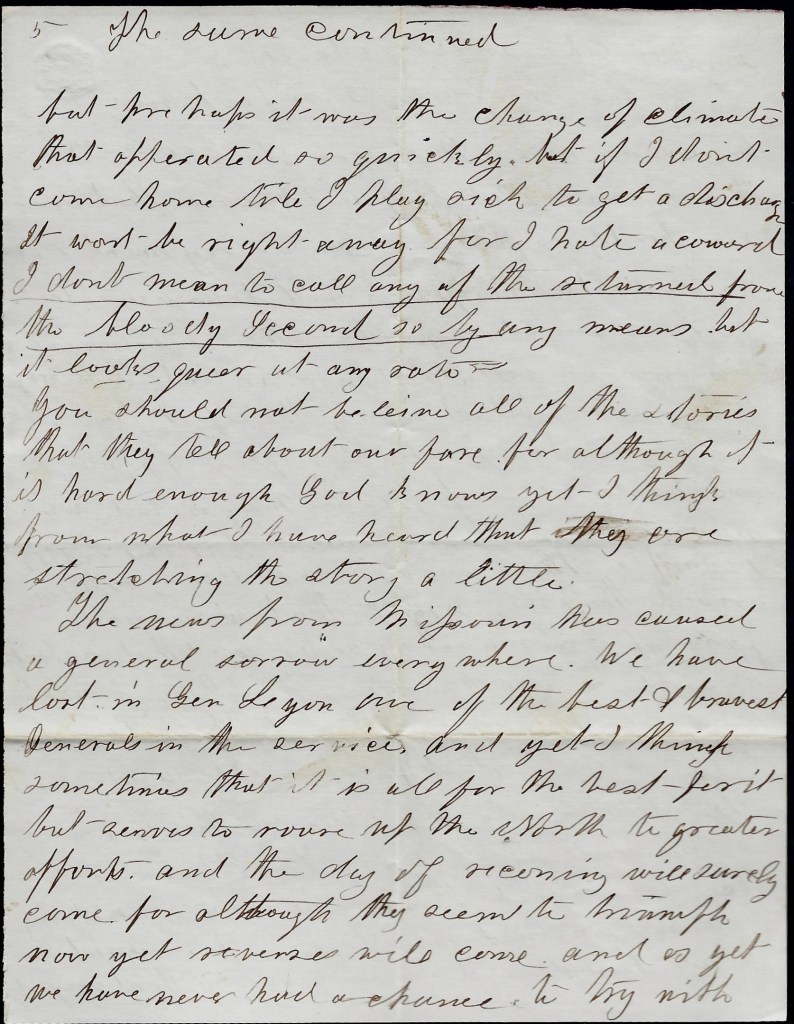 5 The same continued
but perhaps it was the change of climate
that opperated so quickly. but if I dont
come home tile I play sick to get a discharge
It wont be right away for I hate a coward
I dont mean to call any of the returned from
the bloody Second so by any means but
it looks queer at any rate
You should not beleive all of the stories
that they tell about our fare for although it
is hard enough God knows yet I think
from what I have heard that they are
stretching the story a little.
The news from Missouri has caused
a general sorrow everywhere. We have
lost in Gen Leyon one of the best & bravest
Generals in the service, and yet I think
sometimes that it is all for the best for it
but serves to rouse up the North to greater
efforts. and the day of reconing will surely
come for although they seem to triumph
now yet reverses will come. and as yet
we have never had a chance. to try with